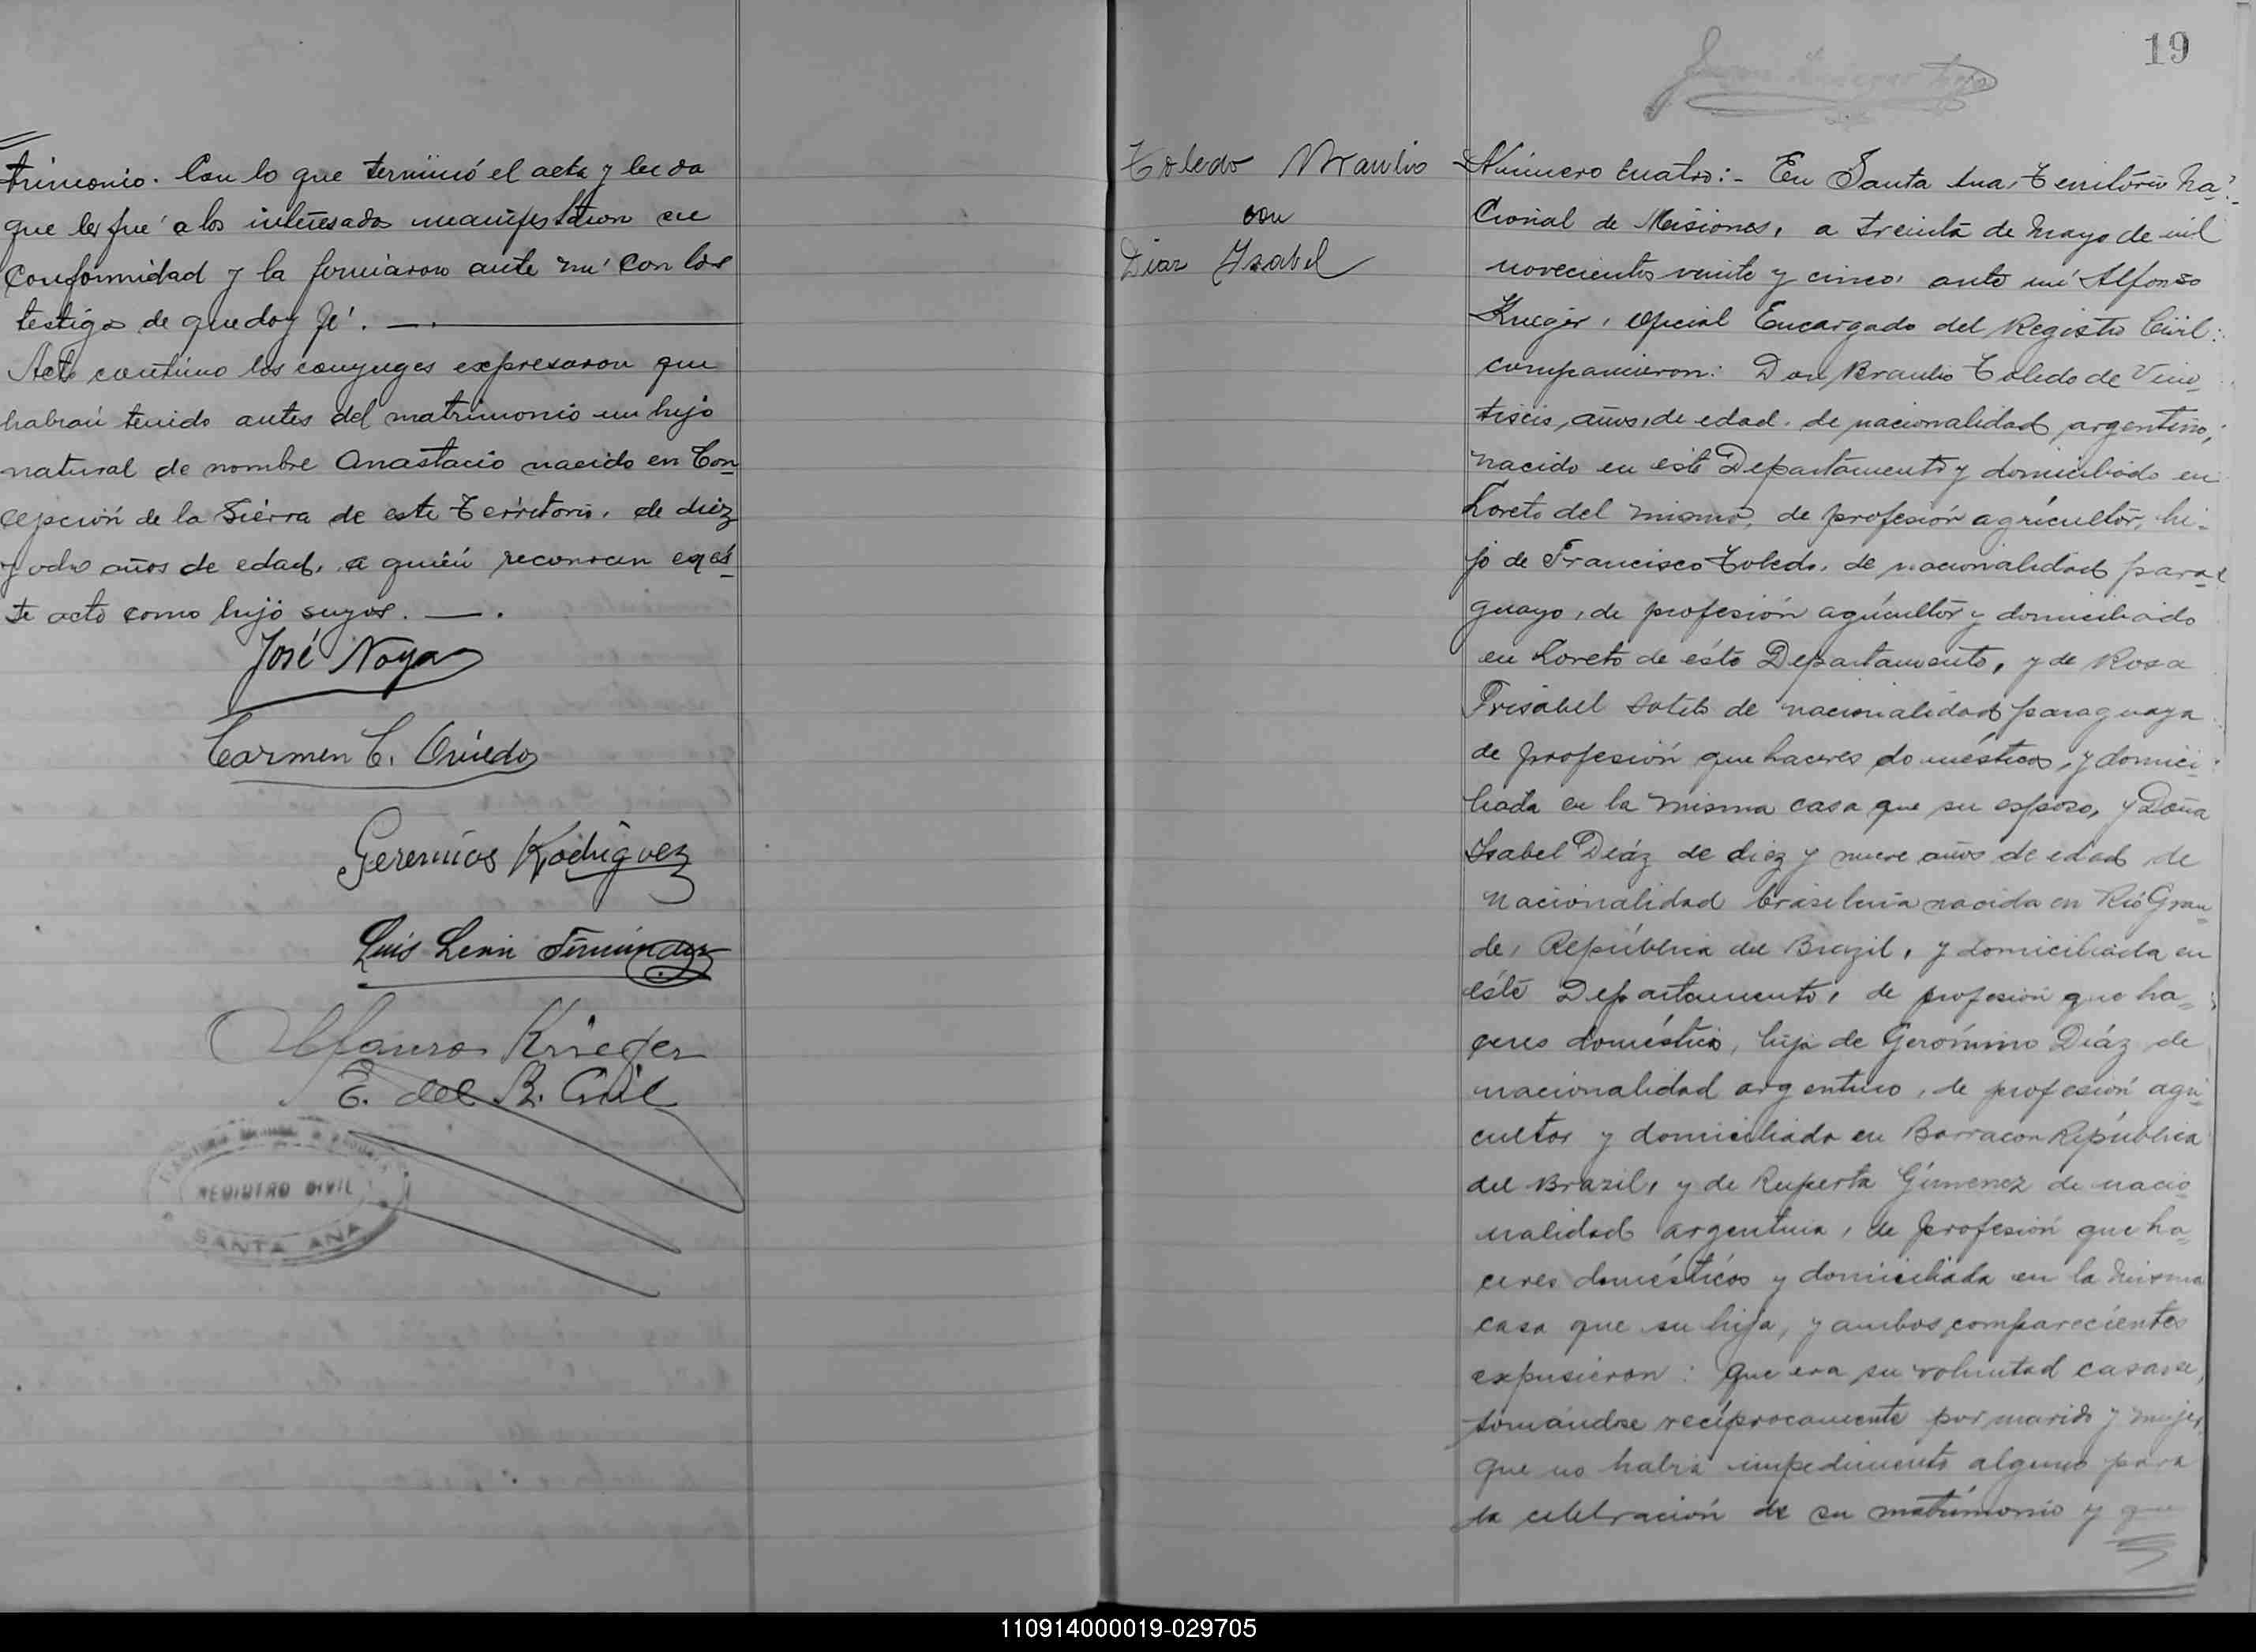 trimonio. Con lo que terminó el acta y leida
que les fué a los interesados manifestaron su
Conformidad y la firmaron ante mi con los
testigos de que doy fé. —.
Acto continuo los conyuges expresaron que
habian tenido antes del matrimonio un hijo
natural de nombre Anastacio nacido en Con
cepción de la Sierra de este Territorio, de diez
y ocho años de edad, a quién reconocen en és
te acto como hijo suyos. —.
José Noya
Carmen C. Oviedo
Geremias Rodriguez
Luis Fernández
Alfonso Krieger
E. del R. Civil
REGISTRO CIVIL
SANTA ANA
19
Toledo Braulio
con
Diaz Ysabel
Número cuatro:- En Santa Ana, Territorio Na-
Cional de Misiones, a treinta de Mayo de mil
novecientos veinte y cinco, ante mi Alfonso
Krieger, Oficial Encargado del Registro Civil:
comparecieron: Don Braulio Toledo de Vein
tiseis años, de edad, de nacionalidad argentino,
nacido en este Departamento y domiciliado en
Loreto del mismo, de profesión agrícultor, hi-
jo de Francisco Toledo, de nacionalidad para
guayo, de profesión agricultor y domiciliado
en Loreto de ésto Departamento, y de Rosa
Sotelo de nacionalidad paraguaya
de profesión que haceres domésticos, y domici
liada en la misma casa que su esposo, y Doña
Isabel Diáz de diez y nueve años de edad de
nacionalidad brasileria nacida en Rió Gran
de, República del Brazil, y domiciliada en
ésté Departamento, de profesión que ha-
ceres doméstico, hija de Gerónimo Diáz de
nacionalidad argentino, de profesión agri
cultor y domiciliado en Barracon República
del Brazil, y de Ruperta Gimenez de nacio
nalidad argentina, de profesión que ha
ceres domésticos y domiciliada en la misma
casa que su hija, y ambos comparecientes
expusieron: que era su voluntad casarse,
tomándose recíprocamente por marido y mujer,
que no habia impedimento alguno para
la celebración de su matrimonio y que
110914000019-029705